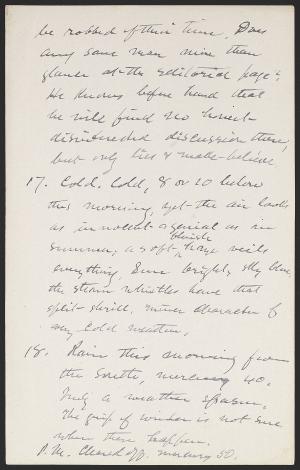 be robbed of their time. Does
any sane man more than
glance at the editorial page?
He knows before hand that
he will find no honest
disinterested discussion there,
but only lies & make-believe
17. Cold, Cold, 8 or 10 below
this morning, yet the air looks
as innocent & genial as in
summer; a soft, bluish haze veils
everything, Sun bright, sky blue,
the steam whistles have that
split-shrill, character of
very cold weather.
18. Rain this morning from
the South, mercury 40.
Truly a weather spasm.
The grip of winter is not sure
when these happen.
P.M. Cleared off. mercury 50.